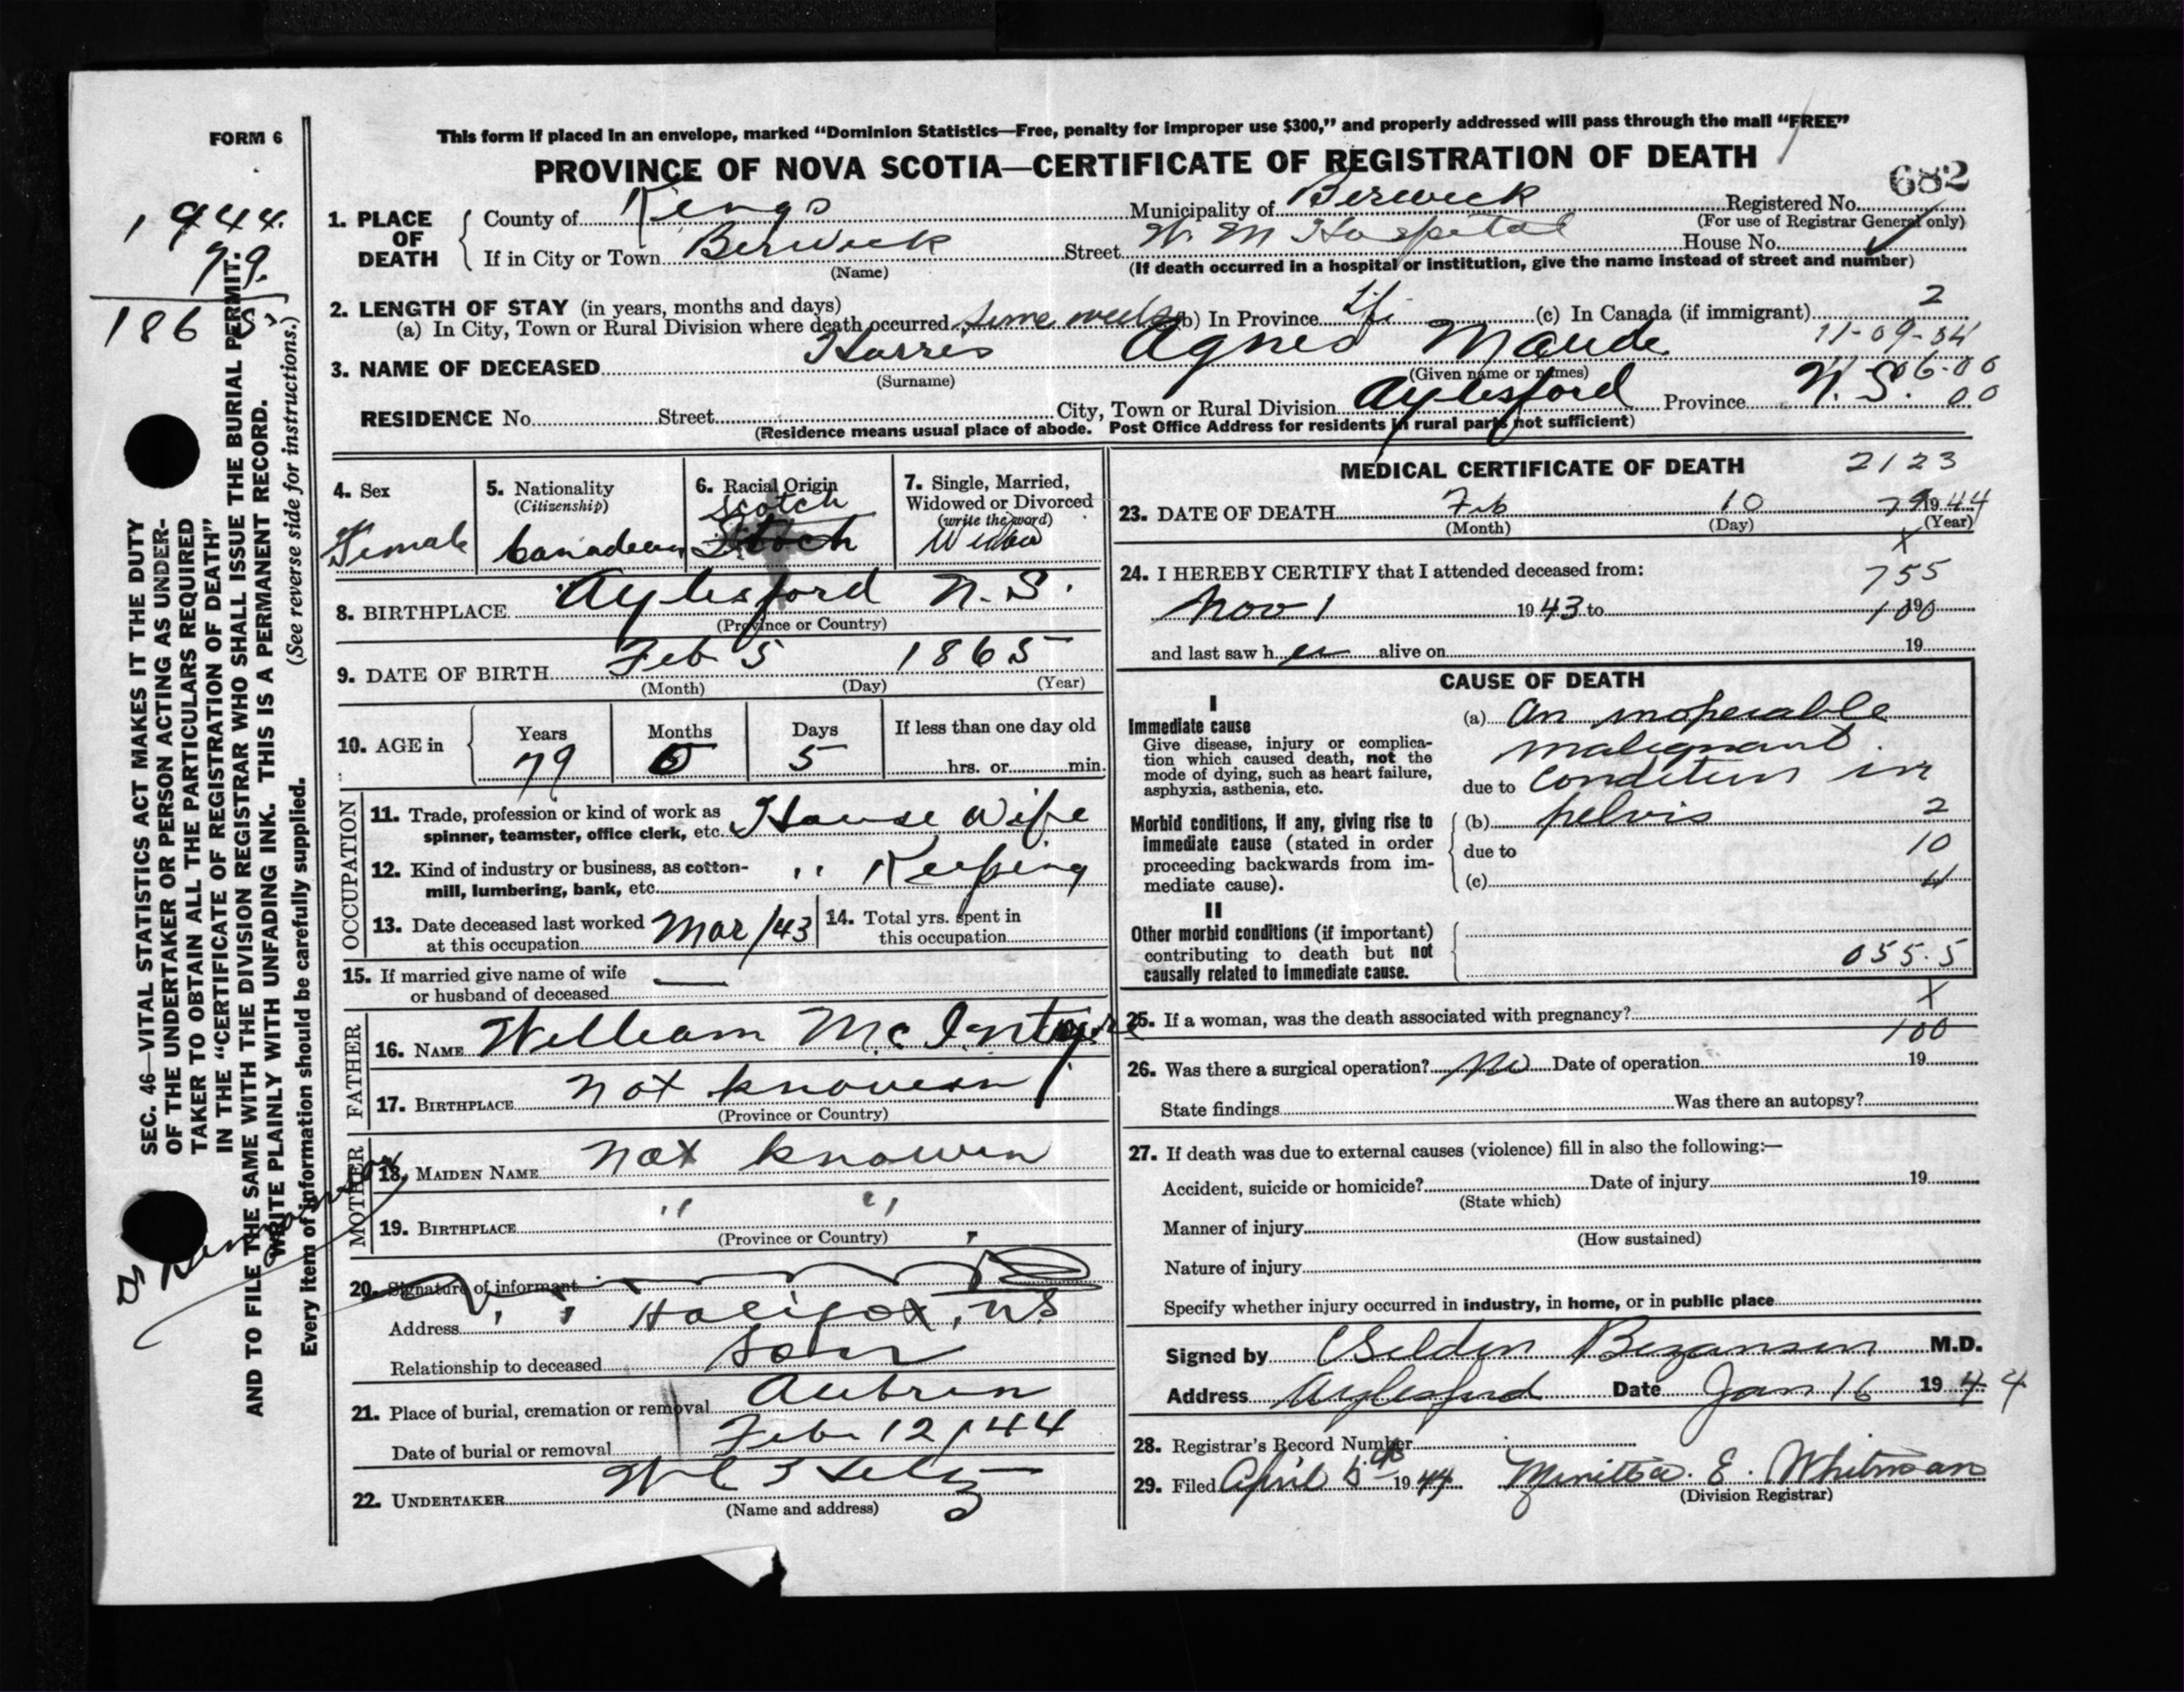 FORM 6
This form if placed in an envelope, marked “Dominion Statistics—Free, penalty for improper use $300,” and properly addressed will pass through the mail “FREE”
PROVINCE OF NOVA SCOTIA—CERTIFICATE OF REGISTRATION OF DEATH
682
1944.
79.
1865
SEC. 46—VITAL STATISTICS ACT MAKES IT THE DUTY
OF THE UNDERTAKER OR PERSON ACTING AS UNDER-
TAKER TO OBTAIN ALL THE PARTICULARS REQUIRED
IN THE “CERTIFICATE OF REGISTRATION OF DEATH”
AND TO FILE THE SAME WITH THE DIVISION REGISTRAR WHO SHALL ISSUE THE BURIAL PERMIT.
WRITE PLAINLY WITH UNFADING INK. THIS IS A PERMANENT RECORD.
(See reverse side for instructions.)
Every item of information should be carefully supplied.
1. PLACE OF DEATH
County of Kings Municipality of Berwick Registered No.
(For use of Registrar General only)
If in City or Town Berwick Street W. M Hospital House No.
(Name) (If death occurred in a hospital or institution, give the name instead of street and number)
2. LENGTH OF STAY (in years, months and days)
(a) In City, Town or Rural Division where death occurred some weeks (b) In Province Life (c) In Canada (if immigrant) 2
11-09-04
3. NAME OF DECEASED Harris Agnes Maude
(Surname) (Given name or names)
06-00
RESIDENCE No. Street City, Town or Rural Division Aylesford Province N. S. 00
(Residence means usual place of abode. Post Office Address for residents in rural parts not sufficient)
4. Sex
Female
5. Nationality
(Citizenship)
Canadian
6. Racial Origin
Scotch
7. Single, Married,
Widowed or Divorced
(write the word)
Widow
8. BIRTHPLACE Aylesford N. S.
(Province or Country)
9. DATE OF BIRTH Feb 5 1865
(Month) (Day) (Year)
10. AGE in
Years Months Days If less than one day old
79 0 5 hrs. or min.
OCCUPATION
11. Trade, profession or kind of work as
spinner, teamster, office clerk, etc. House Wife
12. Kind of industry or business, as cotton-
mill, lumbering, bank, etc. " Keeping
13. Date deceased last worked
at this occupation Mar/43
14. Total yrs. spent in
this occupation
15. If married give name of wife
or husband of deceased —
FATHER
16. NAME William McIntyre
17. BIRTHPLACE not knowen
(Province or Country)
MOTHER
18. MAIDEN NAME not knowen
19. BIRTHPLACE " "
(Province or Country)
20. Signature of informant
Address Halifax, N.S
Relationship to deceased Son
21. Place of burial, cremation or removal
Date of burial or removal Feb 12/44
22. UNDERTAKER
(Name and address)
MEDICAL CERTIFICATE OF DEATH 2123
23. DATE OF DEATH Feb 10 1944
(Month) (Day) (Year)
79
X
24. I HEREBY CERTIFY that I attended deceased from:
755
Nov 1 1943 to 19
100
and last saw her alive on 19
CAUSE OF DEATH
I
Immediate cause
Give disease, injury or complica-
tion which caused death, not the
mode of dying, such as heart failure,
asphyxia, asthenia, etc.
(a) An inoperable
malignant
due to condition in
Morbid conditions, if any, giving rise to
immediate cause (stated in order
proceeding backwards from im-
mediate cause).
(b) pelvis 2
due to 10
(c) 4
II
Other morbid conditions (if important)
contributing to death but not
causally related to immediate cause.
055.5
X
25. If a woman, was the death associated with pregnancy?
100
26. Was there a surgical operation? No Date of operation 19
State findings Was there an autopsy?
27. If death was due to external causes (violence) fill in also the following:—
Accident, suicide or homicide? Date of injury 19
(State which)
Manner of injury
(How sustained)
Nature of injury
Specify whether injury occurred in industry, in home, or in public place
Signed by Selden Bezanson M.D.
Address Aylesford Date Jan 16 1944
28. Registrar's Record Number
29. Filed April 5 1944 E. Whitman
(Division Registrar)